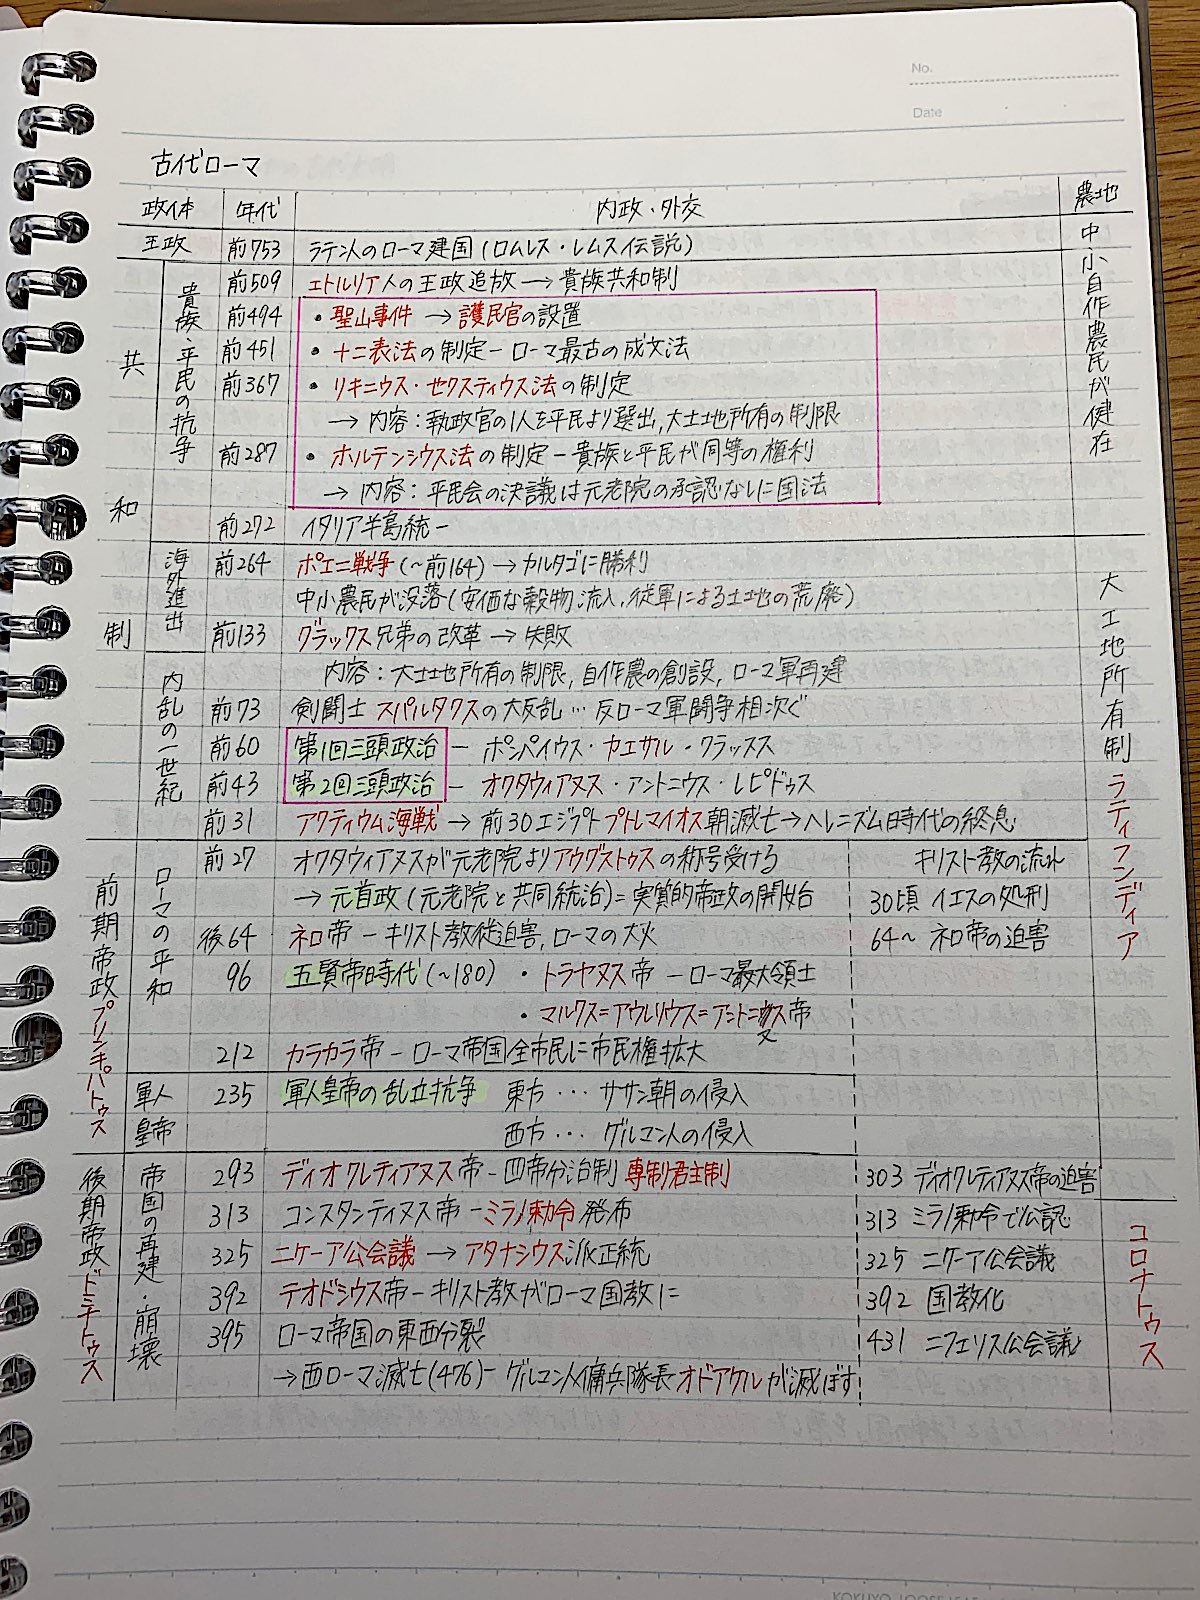 No.
Date
古代ローマ
政体 年代 内政・外交 農地
王政 前753 ラテン人のローマ建国(ロムルス・レムス伝説)
共和制
貴族・平民の抗争
前509 エトルリア人の王政追放→貴族共和制
前494 ・聖山事件→護民官の設置
前451 ・十二表法の制定ーローマ最古の成文法
前367 ・リキニウス・セクスティウス法の制定
→内容:執政官の1人を平民より選出,大土地所有の制限
前287 ・ホルテンシウス法の制定ー貴族と平民が同等の権利
→内容:平民会の決議は元老院の承認なしに国法
前272 イタリア半島統一
中小自作農民が健在
海外進出
前264 ポエニ戦争(~前164)→カルタゴに勝利
中小農民が没落(安価な穀物流入,従軍による土地の荒廃)
前133 グラックス兄弟の改革→失敗
内容:大土地所有の制限,自作農の創設,ローマ軍再建
内乱の一世紀
前73 剣闘士スパルタクスの大反乱…反ローマ軍闘争相次ぐ
前60 第1回三頭政治ーポンペイウス・カエサル・クラッスス
前43 第2回三頭政治ーオクタウィアヌス・アントニウス・レピドゥス
前31 アクティウム海戦→前30エジプトプトレマイオス朝滅亡→ヘレニズム時代の終息
大土地所有制ラティフンディア
前期帝政プリンキパトゥス
ローマの平和
前27 オクタウィアヌスが元老院よりアウグストゥスの称号受ける
→元首政(元老院と共同統治)=実質的帝政の開始
後64 ネロ帝ーキリスト教徒迫害,ローマの大火
96 五賢帝時代(~180) ・トラヤヌス帝ーローマ最大領土
・マルクス=アウレリウス=アントニヌス帝
212 カラカラ帝ーローマ帝国全市民に市民権拡大
軍人皇帝
235 軍人皇帝の乱立抗争 東方…ササン朝の侵入
西方…ゲルマン人の侵入
後期帝政ドミナトゥス
帝国の再建・崩壊
293 ディオクレティアヌス帝ー四帝分治制 専制君主制
313 コンスタンティヌス帝ーミラノ勅令発布
325 ニケーア公会議→アタナシウス派正統
392 テオドシウス帝ーキリスト教がローマ国教に
395 ローマ帝国の東西分裂
→西ローマ滅亡(476)ーゲルマン人傭兵隊長オドアケルが滅ぼす
キリスト教の流れ
30頃 イエスの処刑
64~ ネロ帝の迫害
303 ディオクレティアヌス帝の迫害
313 ミラノ勅令で公認
325 ニケーア公会議
392 国教化
431 ニフェリス公会議
コロナトゥス